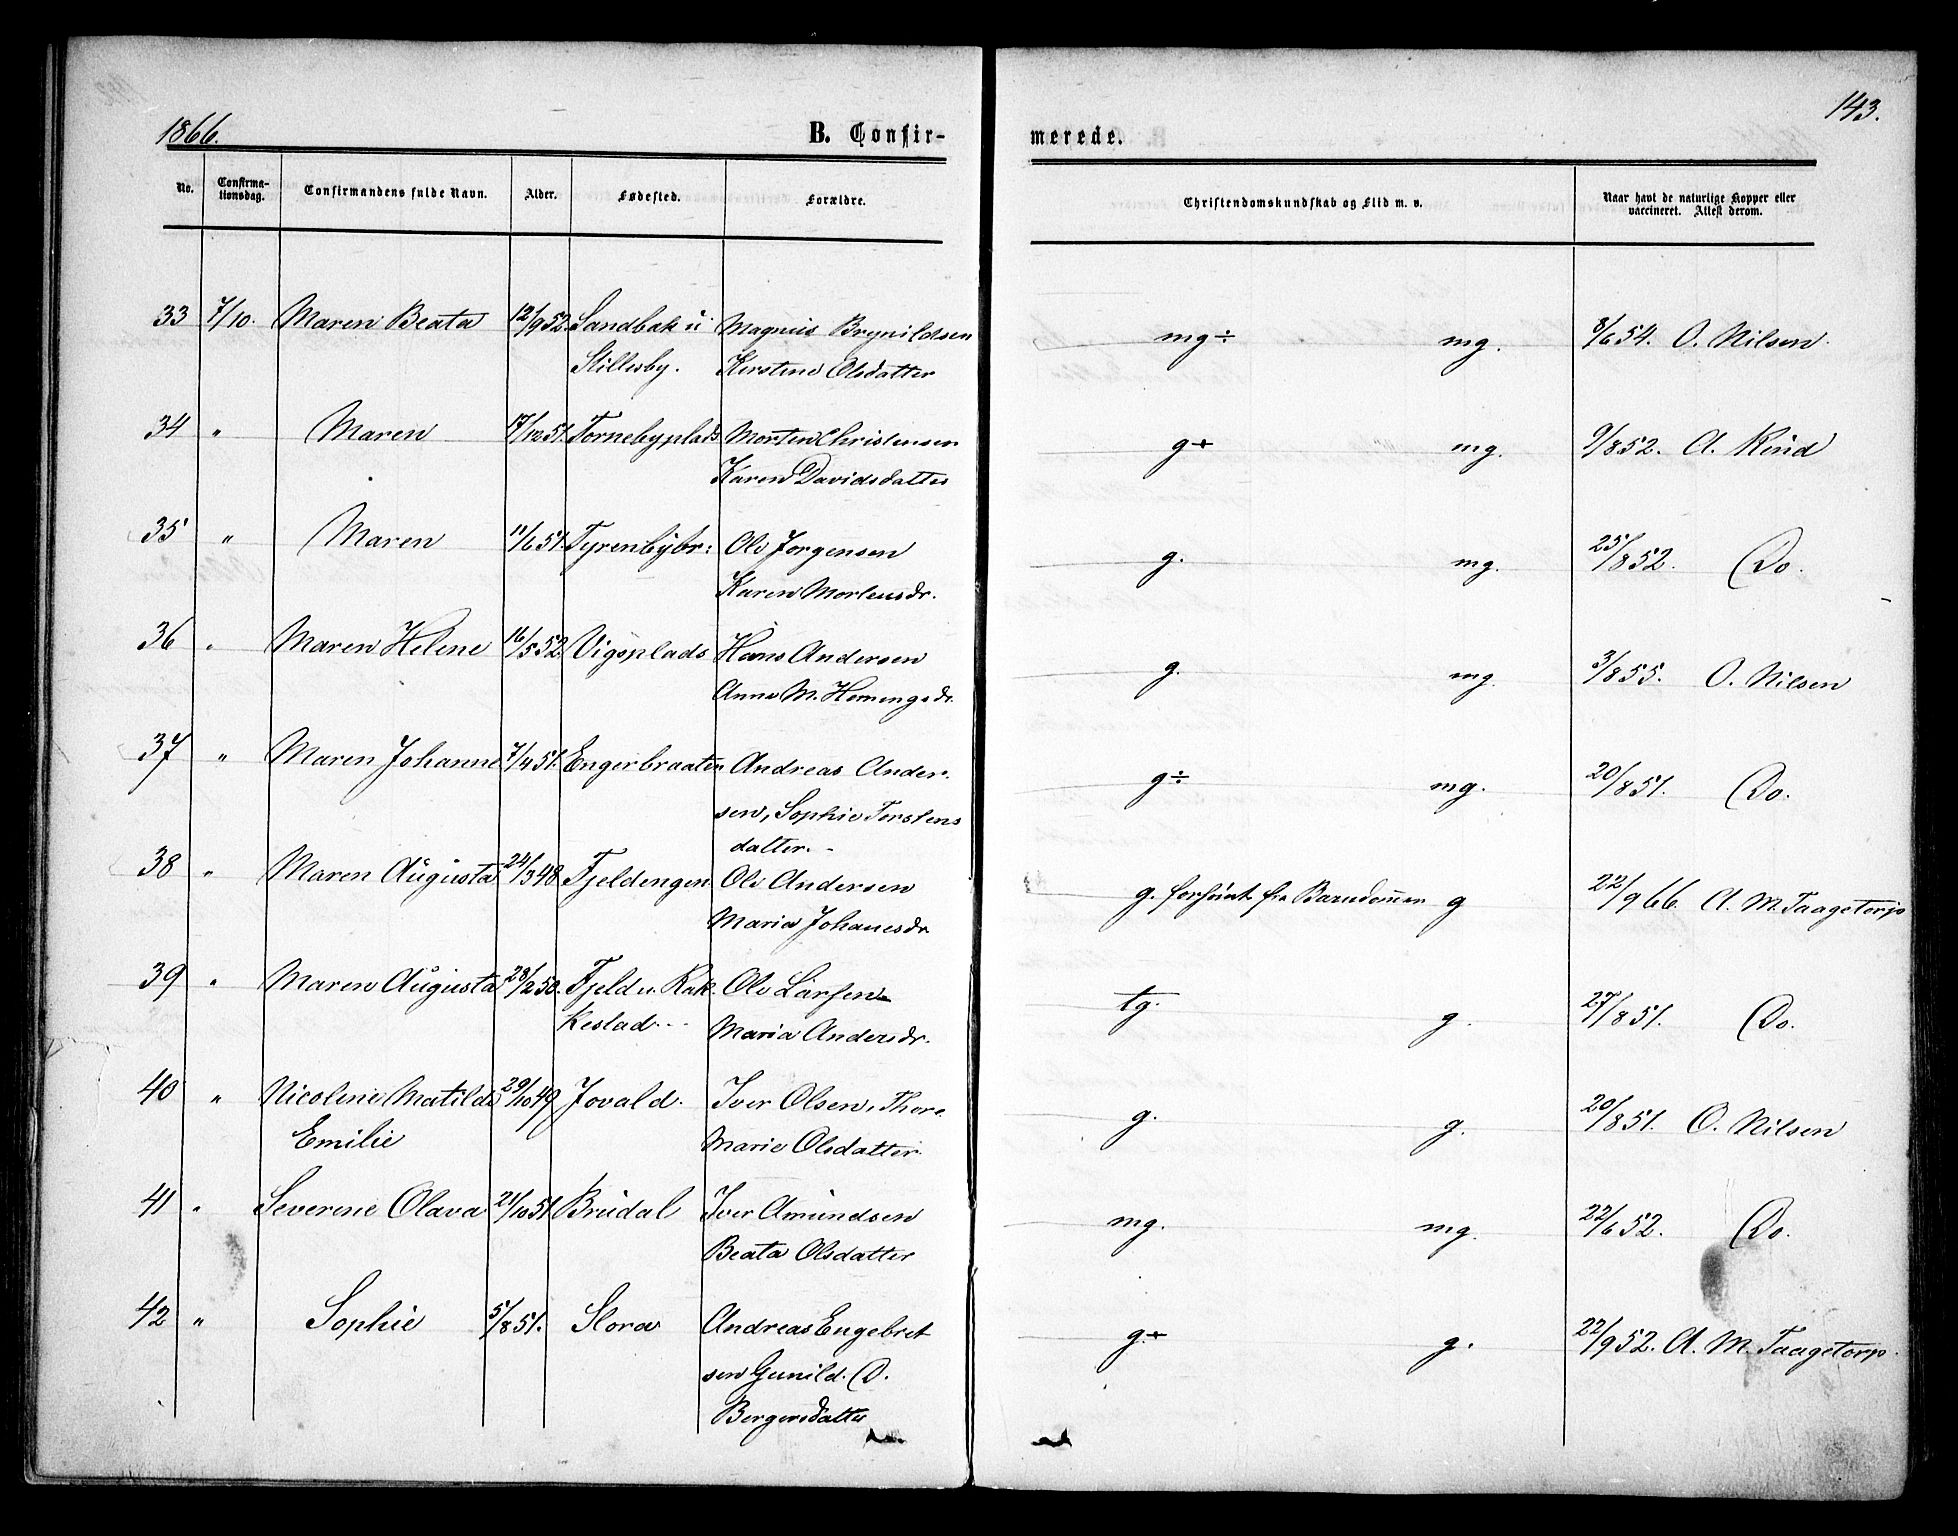 143.
1866.
B. Confir-
merede.
No. Confirma-tionsdag. Confirmandens fulde Navn. Alder. Fødested. Forældre. Christendomskundskab og Flid m. v. Naar havt de naturlige Kopper eller vaccineret. Attest derom.
33 7/10. Maren Beata 12/9 52. Sandbak u Magnus Brynildsen mg÷ mg. 8/6 54. O. Nilsen.
Stillesby. Kirstine Olsdatter
34 " Maren 17/12 51. Tornebyplads Morten Christensen g+ mg. 9/8 52. A. Kind
Karen Davidsdatter
35 " Maren 11/6 51. Tyrenbybr: Ole Jorgensen g. mg. 25/8 52. Do.
Karen Mortensdr.
36 " Maren Helene 16/5 52. Vigsplads Hans Andersen g. mg. 3/8 55. O. Nilsen
Anna M. Hemingsdr.
37 " Maren Johanne 7/4 51. Engerbraaten Andreas Ander- g÷ mg. 20/8 51. Do.
sen, Sophie Torstens
datter.
38 " Maren Augusta 24/3 48. Fjeldengen Ole Andersen g. forsømt fra Barndommen g 22/9 66. A. M. Taagetorp
Maria Johanesdr
39 " Maren Augusta 28/2 50. Fjeld u. Rak- Ole Larsen tg. g. 27/8 51. Do.
kestad. Maria Andersdr.
40 " Nicoline Matilde 29/10 49 Jovald. Iver Olsen, Thore g. g. 20/8 51. O. Nilsen
Emilie Marie Olsdatter.
41 " Severine Olava 21/10 51 Brudal Iver Amundsen mg. mg. 22/6 52. Do.
Beata Olsdatter
42 " Sophie 5/8 51. Slora Andreas Engebret g.+ g. 22/9 52. A. M. Taagetorp.
sen Gunild. O.
Bergersdatter